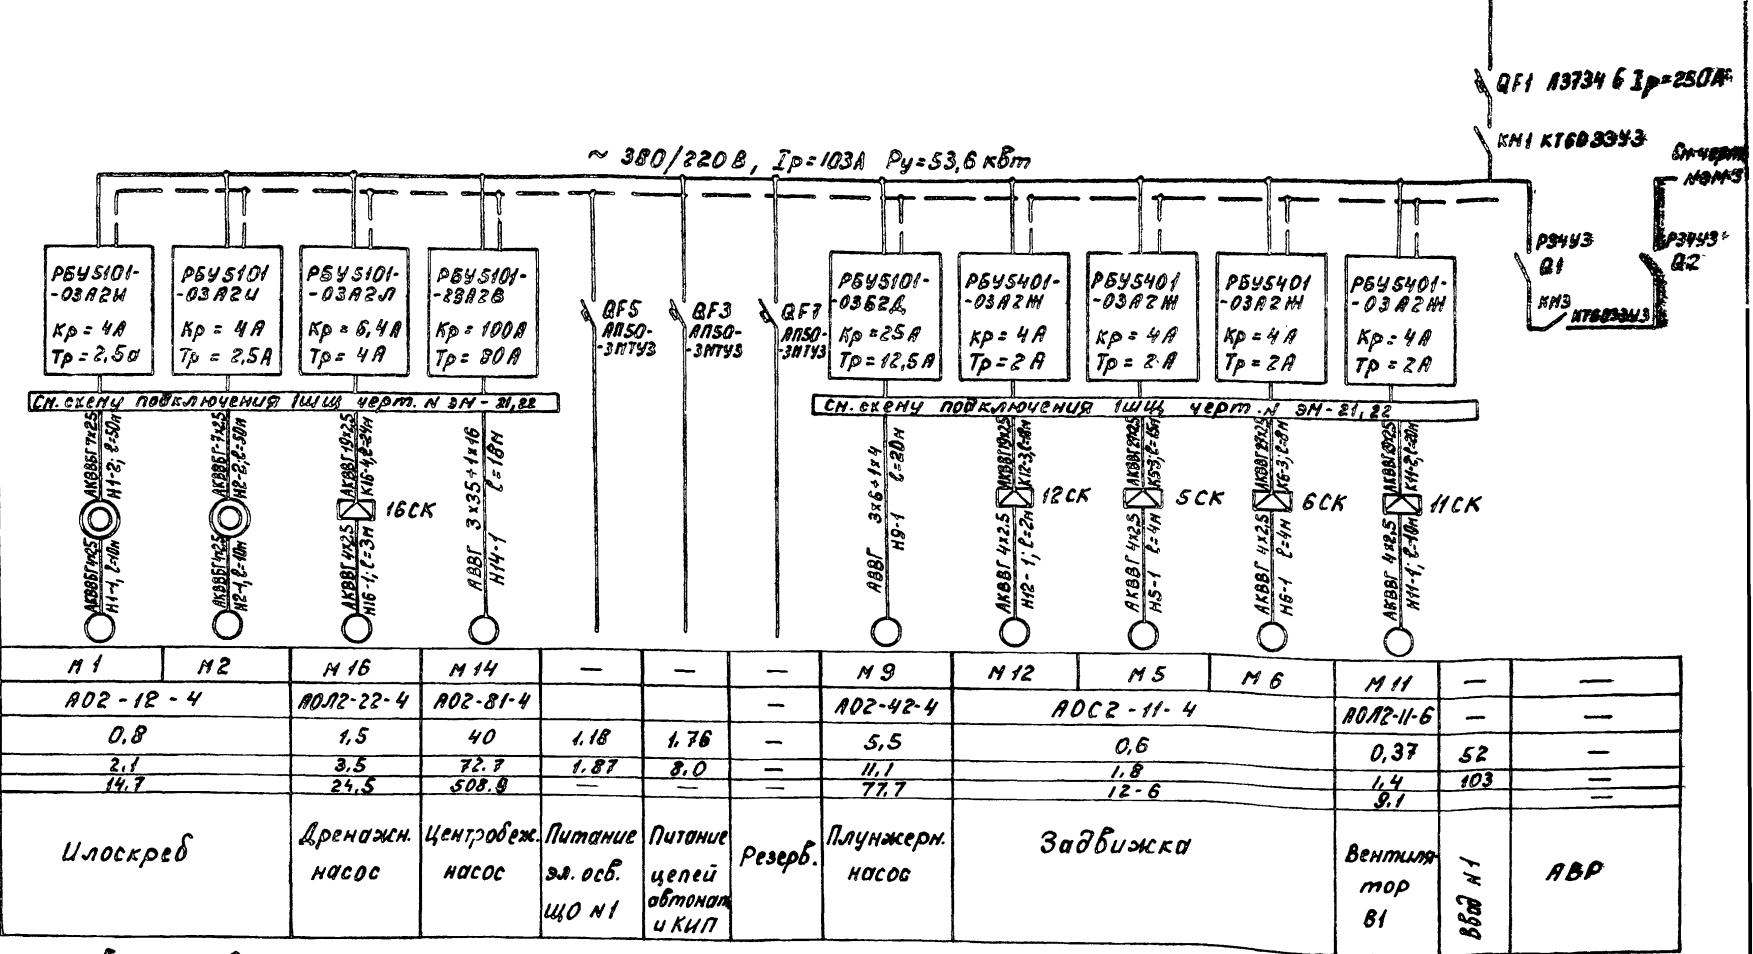 QF1 А3734 Б Iр=250А
КМ1 КТ6033У3
См. черт.
NЭМ-3
~ 380/220 В, Iр=103А Ру=53,6 кВт
РЗ4У3
Q1
РЗ4У3
Q2
КМ3
КТ6033У3
РБУ5101-
-03А2И
Кр = 4А
Тр = 2,5а
РБУ5101
-03А2И
Кр = 4А
Тр = 2,5А
РБУ5101-
-03А2Л
Кр = 6,4А
Тр = 4А
РБУ5101-
Кр = 100А
Тр = 80А
QF5
АП50-
-3МТУ3
QF3
АП50-
-3МТУ3
QF7
АП50-
-3МТУ3
РБУ5101-
-03Б2Д
Кр = 25А
Тр = 12,5А
РБУ5401-
-03А2Ж
Кр = 4А
Тр = 2А
РБУ5401
-03А2Ж
Кр = 4А
Тр = 2А
РБУ5401
-03А2Ж
Кр = 4А
Тр = 2А
РБУ5401-
-03А2Ж
Кр = 4А
Тр = 2А
См. схему подключения 1шщ черт. N ЭМ-21,22
См. схему подключения 1шщ черт. N ЭМ-21,22
АКВВБГ 7х2,5
Н1-2; ℓ=50м
АКВВБГ-7х2,5
Н2-2; ℓ=50м
АКВВГ 19х2,5
К16-1, ℓ=24м
АВВГ 3х35+1х16
Н14-1 ℓ=18м
АВВГ 3х6+1х4
Н9-1 ℓ=20м
АКВВГ 19х2,5
К12-3, ℓ=18м
К5-3; ℓ=15м
К6-3; ℓ=8м
АКВВГ 19х2,5
К11-2, ℓ=20м
16СК
12СК
5СК
6СК
11СК
АКВВБГ 4х2,5
Н1-1, ℓ=10м
АКВВБГ 4х2,5
Н2-1, ℓ=10м
АКВВГ 4х2,5
Н16-1; ℓ=3м
АКВВГ 4х2,5
Н12-1; ℓ=2м
АКВВГ 4х2,5
Н5-1 ℓ=4м
АКВВГ 4х2,5
Н6-1 ℓ=4м
АКВВГ 4х2,5
Н11-1; ℓ=10м
М1 М2 М16 М14 — — — М9 М12 М5 М6 М11 — —
АО2-12-4 АОЛ2-22-4 АО2-81-4 — АО2-42-4 АОС2-11-4 АОЛ2-11-6 — —
0,8 1,5 40 1.18 1.76 — 5,5 0,6 0,37 52 —
2.1 3.5 72.7 1.87 8.0 — 11,1 1.8 1,4 103 —
14.7 24,5 508.9 — — — 77.7 12-6 9.1 —
Илоскреб
Дренажн.
насос
Центробеж.
насос
Питание
эл. осв.
ЩО N1
Питание
цепей
автомат
и КИП
Резерв.
Плунжерн.
насос
Задвижка
Вентиля-
тор
В1
Ввод N1
АВР